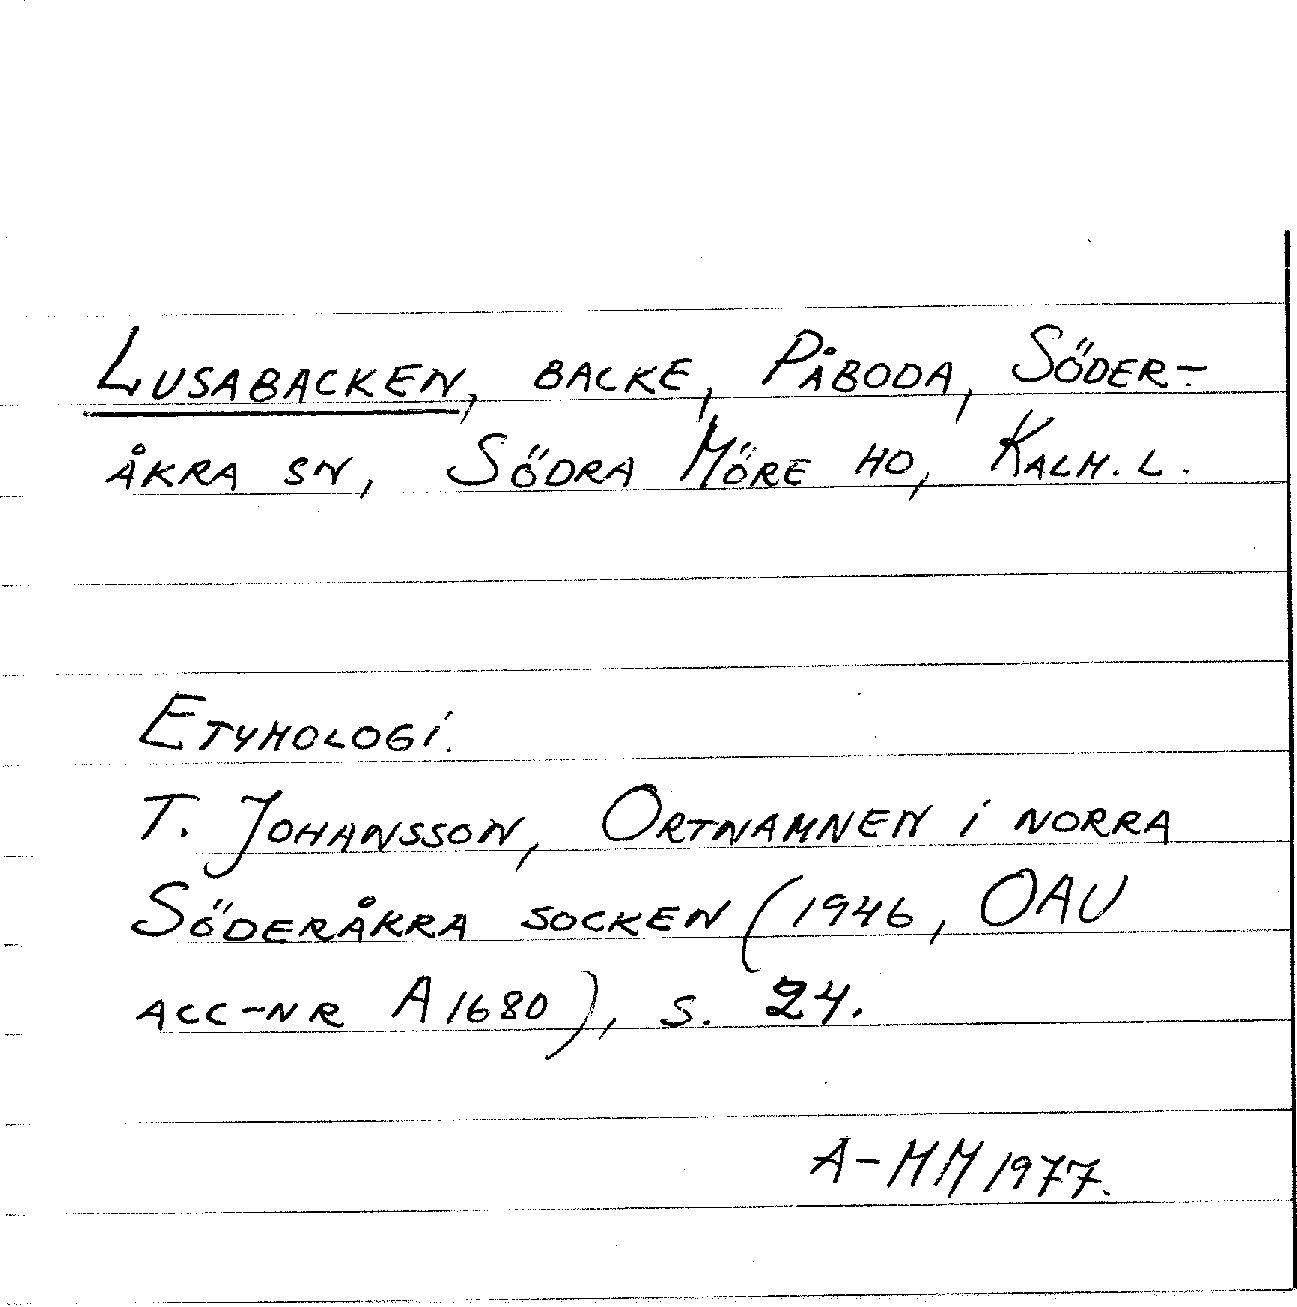 Lusabacken, backe, Påboda, Söder-
åkra sn, Södra Möre hd, Kalm. l.
Etymologi.
T. Johansson, Ortnamnen i norra
Söderåkra socken (1946, OAU
acc-nr A 1680), s. 24.
A-MM 1977.